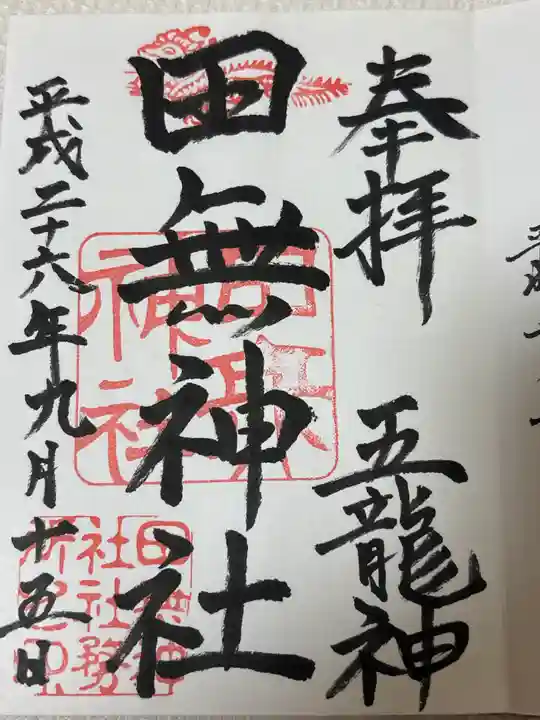 奉拝
五龍神
田無神社
平成二十六年九月十五日
田無神社
田無神
社社務
所之印